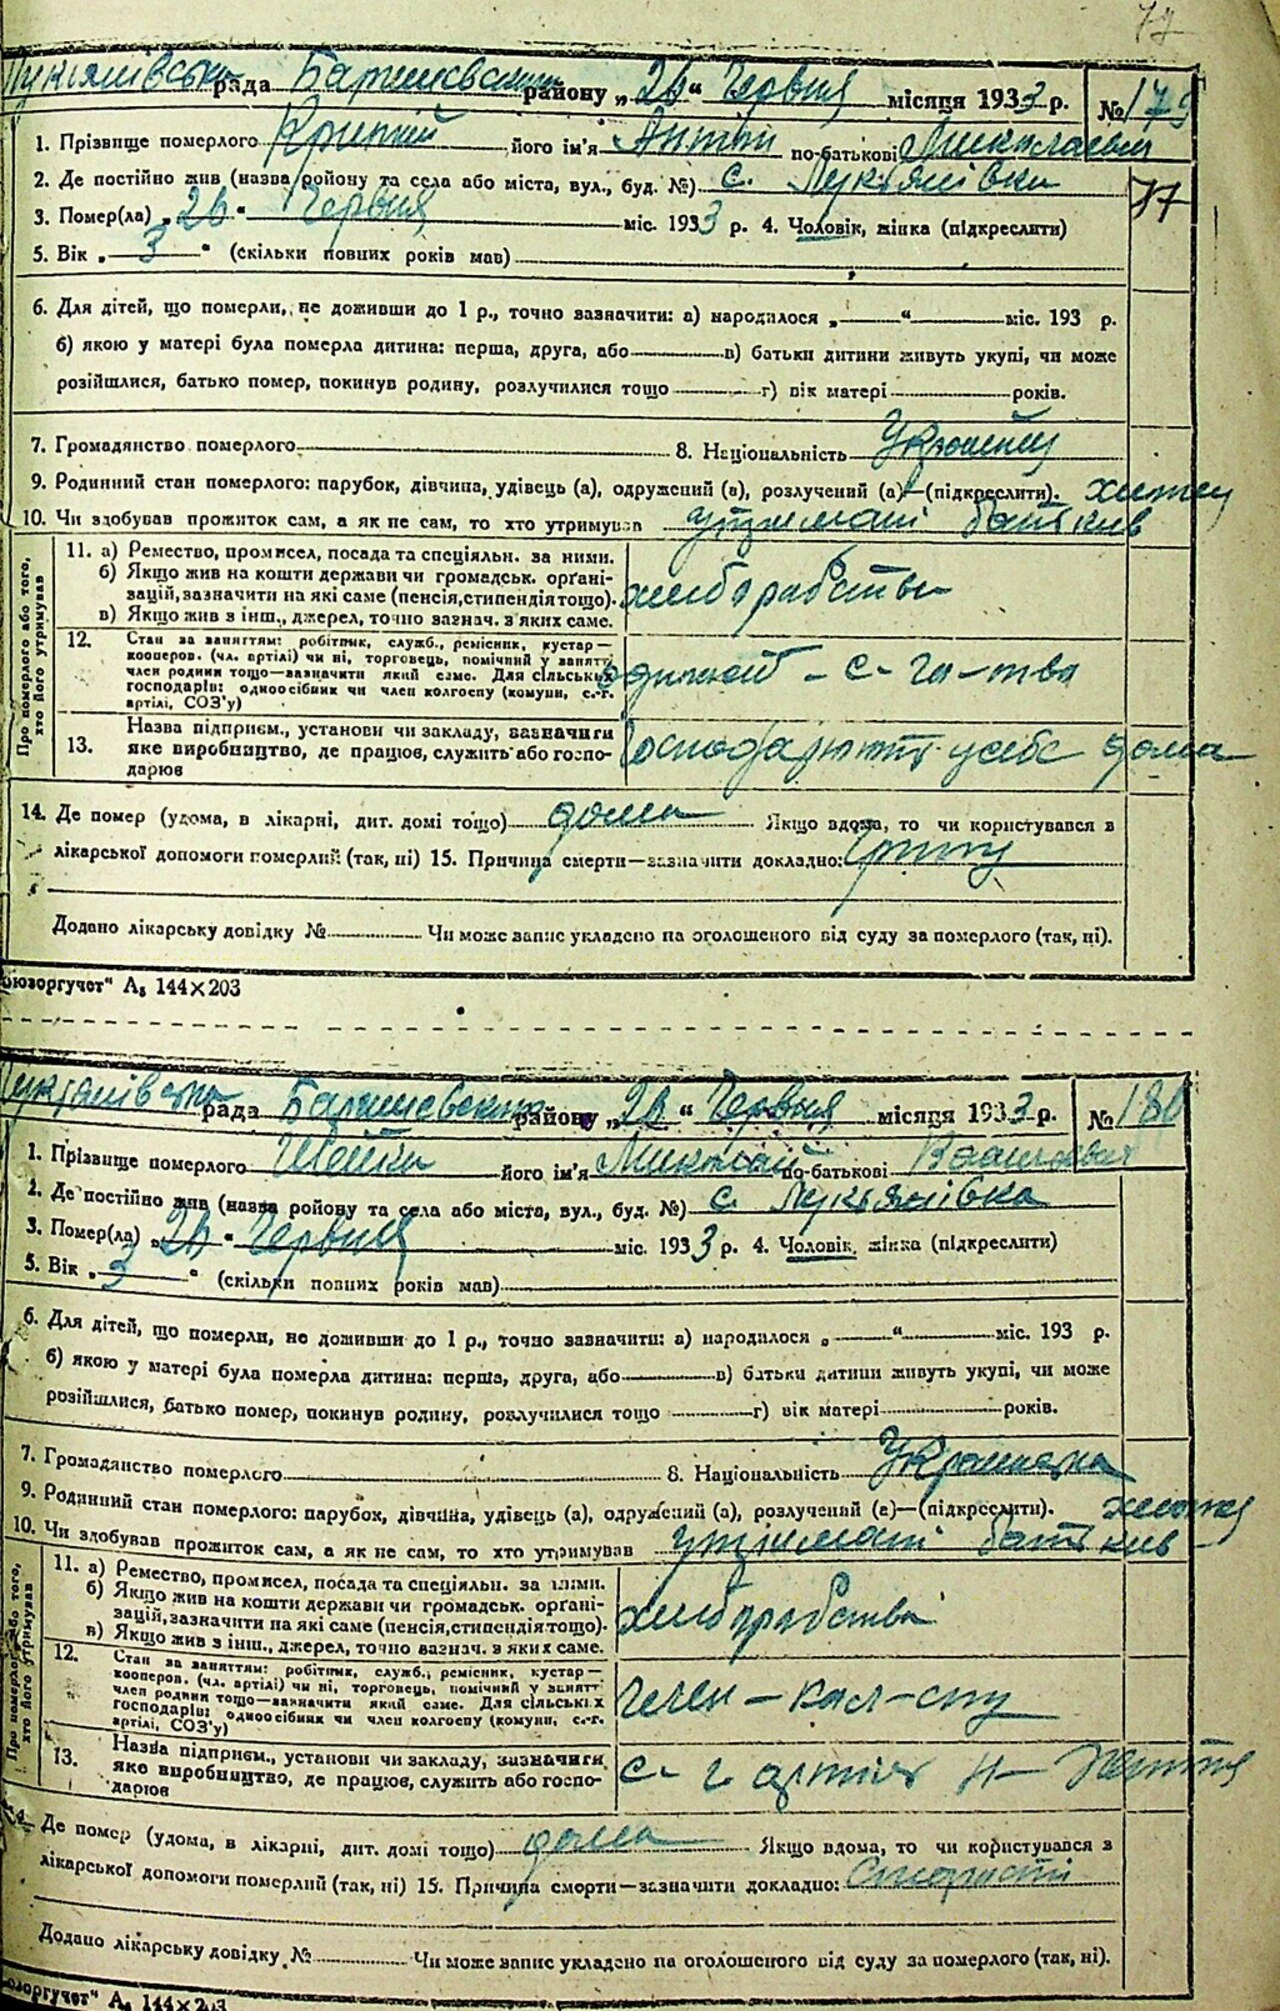 77
рада Баришевского району „26“ Червня місяця 1933 р. № 179
1. Прізвище померлого його ім'я Антон по-батькові Миколаевич
2. Де постійно жив (назва ройону та села або міста, вул., буд. №) с. Лукьянівка
77
3. Помер(ла) „26“ Червня міс. 1933 р. 4. Чоловік, жінка (підкреслити)
5. Вік „3“ (скільки повних років мав)
6. Для дітей, що померли, не доживши до 1 р., точно зазначити: а) народилося „ “ міс. 193 р.
б) якою у матері була померла дитина: перша, друга, або в) батьки дитини живуть укупі, чи може
розійшлися, батько помер, покинув родину, розлучилися тощо г) вік матері років.
7. Громадянство померлого 8. Національність
9. Родинний стан померлого: парубок, дівчина, удівець (а), одружений (а), розлучений (а)—(підкреслити).
10. Чи здобував прожиток сам, а як не сам, то хто утримував
Про померлого або того, хто його утримував
11. а) Ремество, промисел, посада та спеціяльн. за ними.
б) Якщо жив на кошти держави чи громадськ. орґані-
зацій, зазначити на які саме (пенсія, стипендія тощо). хлеборабство
в) Якщо жив з інш., джерел, точно вазнач. з яких саме.
12. Стан за заняттям: робітник, служб., ремісник, кустар—
кооперов. (чл. артілі) чи ні, торговець, помічний у занятті
член родини тощо—вазначити який саме. Для сільських
господарів: одноосібник чи член колгоспу (комуни, с.-г.
артілі, СОЗ'у)
Назва підприєм., установи чи закладу, вазначити
13. яке виробництво, де працюв, служить або госпо- у себе дома
дарюв
14. Де помер (удома, в лікарні, дит. домі тощо) дома Якщо вдома, то чи користувався в
лікарської допомоги померлий (так, ні) 15. Причина смерти—зазначити докладно:
Додано лікарську довідку № Чи може запис укладено на оголошеного від суду за померлого (так, ні).
оюзоргучет“ А₅ 144×203
рада Баришевского району „26“ Червня місяця 1933 р. № 180
1. Прізвище померлого Швайка його ім'я Миколай по-батькові Васильевич
2. Де постійно жив (назва ройону та села або міста, вул., буд. №) с. Лукьянівка
3. Помер(ла) „26“ Червня міс. 1933 р. 4. Чоловік, жінка (підкреслити)
5. Вік „3“ (скільки повних років мав)
6. Для дітей, що померли, не доживши до 1 р., точно зазначити: а) народилося „ “ міс. 193 р.
б) якою у матері була померла дитина: перша, друга, або в) батьки дитини живуть укупі, чи може
розійшлися, батько помер, покинув родину, розлучилися тощо г) вік матері років.
7. Громадянство померлого 8. Національність
9. Родинний стан померлого: парубок, дівчина, удівець (а), одружений (а), розлучений (а)—(підкреслити).
10. Чи здобував прожиток сам, а як не сам, то хто утримував
Про померлого або того, хто його утримував
11. а) Ремество, промисел, посада та спеціяльн. за ними.
б) Якщо жив на кошти держави чи громадськ. орґані-
зацій, зазначити на які саме (пенсія, стипендія тощо). хлеборабства
в) Якщо жив з інш., джерел, точно вазнач. з яких саме.
12. Стан за заняттям: робітник, служб., ремісник, кустар—
кооперов. (чл. артілі) чи ні, торговець, помічний у занятті
член родини тощо—вазначити який саме. Для сільських
господарів: одноосібник чи член колгоспу (комуни, с.-г.
артілі, СОЗ'у)
Назва підприєм., установи чи закладу, зазначити
13. яке виробництво, де працюв, служить або госпо-
дарюв
Де помер (удома, в лікарні, дит. домі тощо) дома Якщо вдома, то чи користувався з
лікарської допомоги померлий (так, ні) 15. Причина смерти—зазначити докладно:
Додано лікарську довідку № Чи може запис укладено на оголошеного від суду за померлого (так, ні).
юзоргучет“ А₅ 144×203